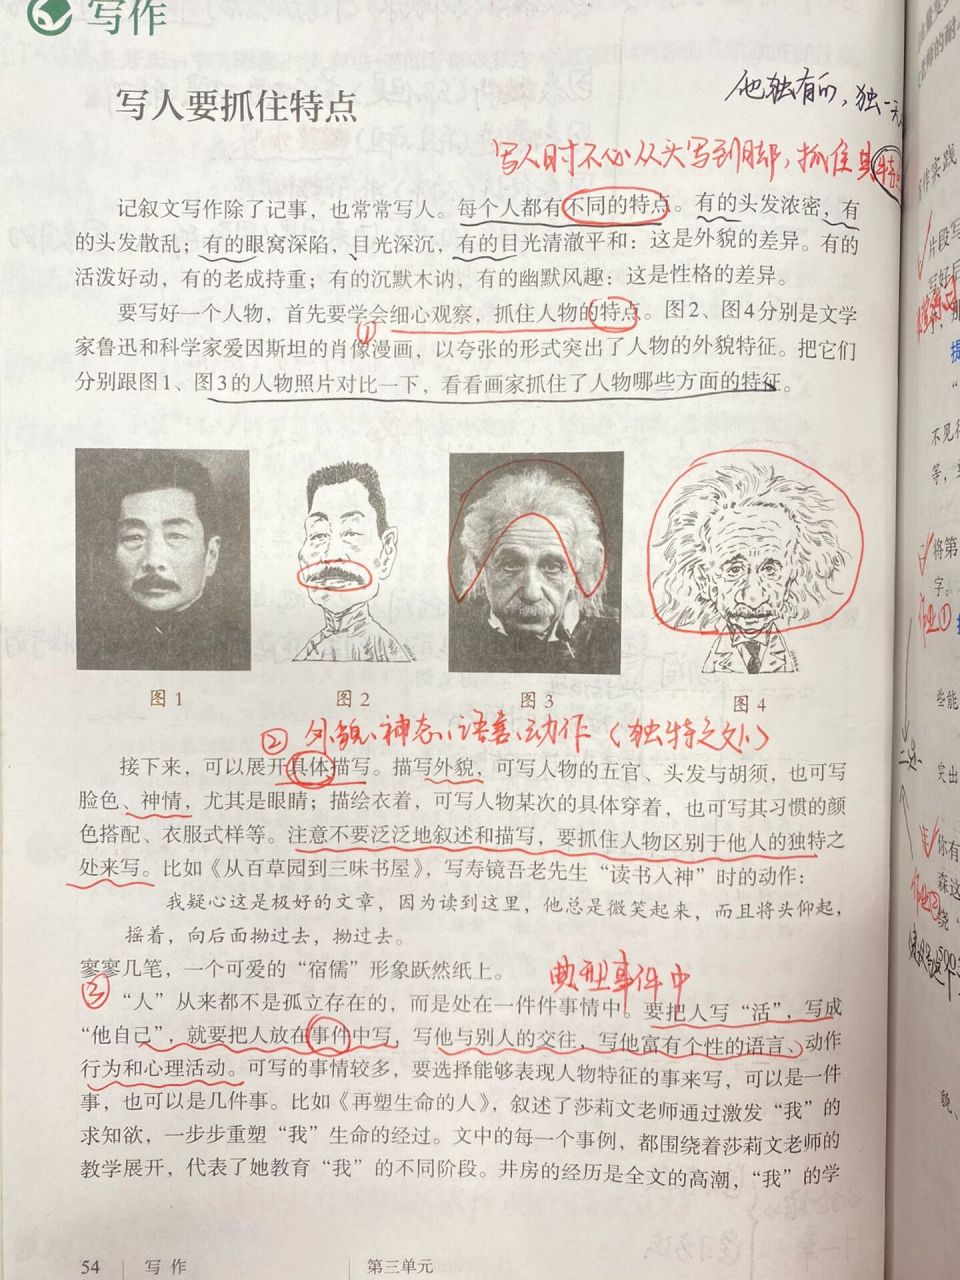 写作
写人要抓住特点
他独有的，独一无
写人时不必从头写到脚，抓住其特点
记叙文写作除了记事，也常常写人。每个人都有不同的特点。有的头发浓密，有
的头发散乱；有的眼窝深陷，目光深沉，有的目光清澈平和：这是外貌的差异。有的
活泼好动，有的老成持重；有的沉默木讷，有的幽默风趣：这是性格的差异。
要写好一个人物，首先要学会细心观察，抓住人物的特点。图2、图4分别是文学
①
家鲁迅和科学家爱因斯坦的肖像漫画，以夸张的形式突出了人物的外貌特征。把它们
分别跟图1、图3的人物照片对比一下，看看画家抓住了人物哪些方面的特征。
图1
图2
图3
图4
② 外貌、神态、语言、动作（独特之处）
接下来，可以展开具体描写。描写外貌，可写人物的五官、头发与胡须，也可写
脸色、神情，尤其是眼睛；描绘衣着，可写人物某次的具体穿着，也可写其习惯的颜
色搭配、衣服式样等。注意不要泛泛地叙述和描写，要抓住人物区别于他人的独特之
处来写。比如《从百草园到三味书屋》，写寿镜吾老先生“读书入神”时的动作：
我疑心这是极好的文章，因为读到这里，他总是微笑起来，而且将头仰起，
摇着，向后面拗过去，拗过去。
寥寥几笔，一个可爱的“宿儒”形象跃然纸上。
典型事件中
③
“人”从来都不是孤立存在的，而是处在一件件事情中。要把人写“活”，写成
“他自己”，就要把人放在事件中写，写他与别人的交往，写他富有个性的语言、动作
行为和心理活动。可写的事情较多，要选择能够表现人物特征的事来写，可以是一件
事，也可以是几件事。比如《再塑生命的人》，叙述了莎莉文老师通过激发“我”的
求知欲，一步步重塑“我”生命的经过。文中的每一个事例，都围绕着莎莉文老师的
教学展开，代表了她教育“我”的不同阶段。井房的经历是全文的高潮，“我”的学
54
写作
第三单元
作实践
片段写
提
不见得
等，
将第
字。
作业①
些能
二选一
突出
你有
森这
作业②
绕“